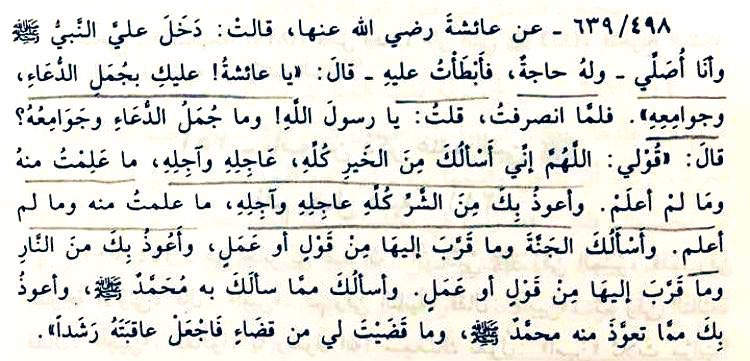 ٦٣٩/٤٩٨ ـ عن عائشةَ رضي الله عنها، قالتْ: دَخَلَ عليَّ النَّبيُّ ﷺ
وأنَا أُصَلِّي ـ ولهُ حاجةٌ، فَأَبْطَأْتُ عليهِ ـ قالَ: «يا عائشةُ! عليكِ بجُمَلِ الدُّعَاءِ،
وجوامِعِهِ». فلمَّا انصرفتُ، قلتُ: يا رسولَ اللَّهِ! وما جُمَلُ الدُّعَاءِ وجَوَامِعُهُ؟
قالَ: «قُوْلي: اللَّهُمَّ إنِّي أَسْأَلُكَ مِنَ الخَيرِ كُلِّهِ، عَاجِلِهِ وآجِلِهِ، ما عَلِمْتُ منهُ
ومَا لمْ أعلَمْ. وأعوذُ بِكَ مِنَ الشَّرِّ كُلِّهِ عاجِلِهِ وآجِلِهِ، ما علمتُ منه وما لم
أعلم. وأَسْأَلُكَ الجَنَّةَ وما قَرَّبَ إليهَا مِنْ قَوْلٍ أو عَمَلٍ، وأَعُوذُ بِكَ منَ النَّارِ
وما قَرَّبَ إليهَا مِنْ قَوْلٍ أو عَمَلٍ. وأسألُكَ ممَّا سألَكَ به مُحَمَّدٌ ﷺ، وأعوذُ
بِكَ ممَّا تعوَّذَ منه محمَّدٌ ﷺ، وما قَضَيْتَ لي من قضاءٍ فَاجْعَلْ عاقبَتَهُ رَشَداً».